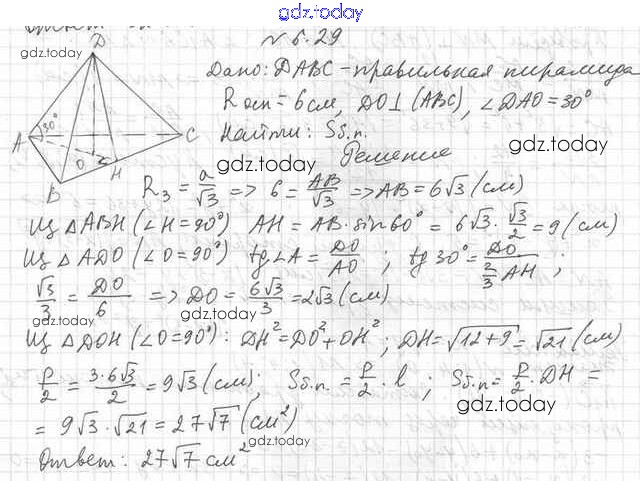 gdz.today
№ 6.29
gdz.today
Дано: DABC - правильная пирамида
Rосн = 6 см, DO⊥(ABC), ∠DAO = 30°
Найти: Sб.п. gdz.today
gdz.today Решение
D
A 30° C
O H
B
R₃ = a/√3 => 6 = AB/√3 => AB = 6√3 (см)
Из △ABH (∠H = 90°) AH = AB · sin 60° = 6√3 · √3/2 = 9 (см)
Из △ADO (∠O = 90°) tg∠A = DO/AO ; tg 30° = DO/(2/3 AH) ;
gdz.today gdz.today
√3/3 = DO/6 => DO = 6√3/3 = 2√3 (см)
gdz.today gdz.today gdz.today
Из △DOH (∠O = 90°): DH² = DO² + OH² ; DH = √(12+9) = √21 (см)
P/2 = 3·6√3/2 = 9√3 (см); Sб.п. = P/2 · l ; Sб.п. = P/2 · DH =
gdz.today gdz.today
= 9√3 · √21 = 27√7 (см²)
gdz.today
Ответ: 27√7 см²